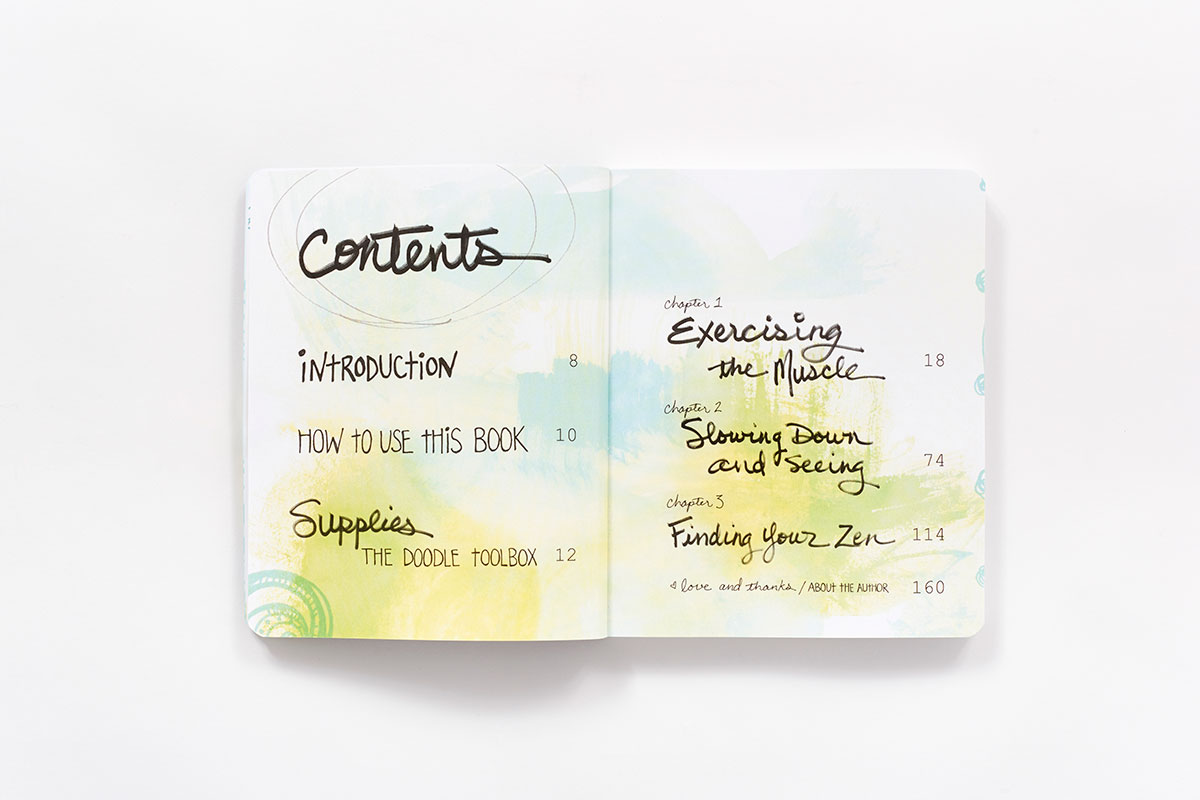 Contents
iNtRODUCtiON 8
HOW tO USE tHiS BOOK 10
Supplies
THE DOODLE tOOLBOX 12
chapter 1
Exercising
the Muscle 18
chapter 2
Slowing Down
and Seeing 74
chapter 3
Finding Your Zen 114
love and thanks / ABOUT THE AUTHOR 160